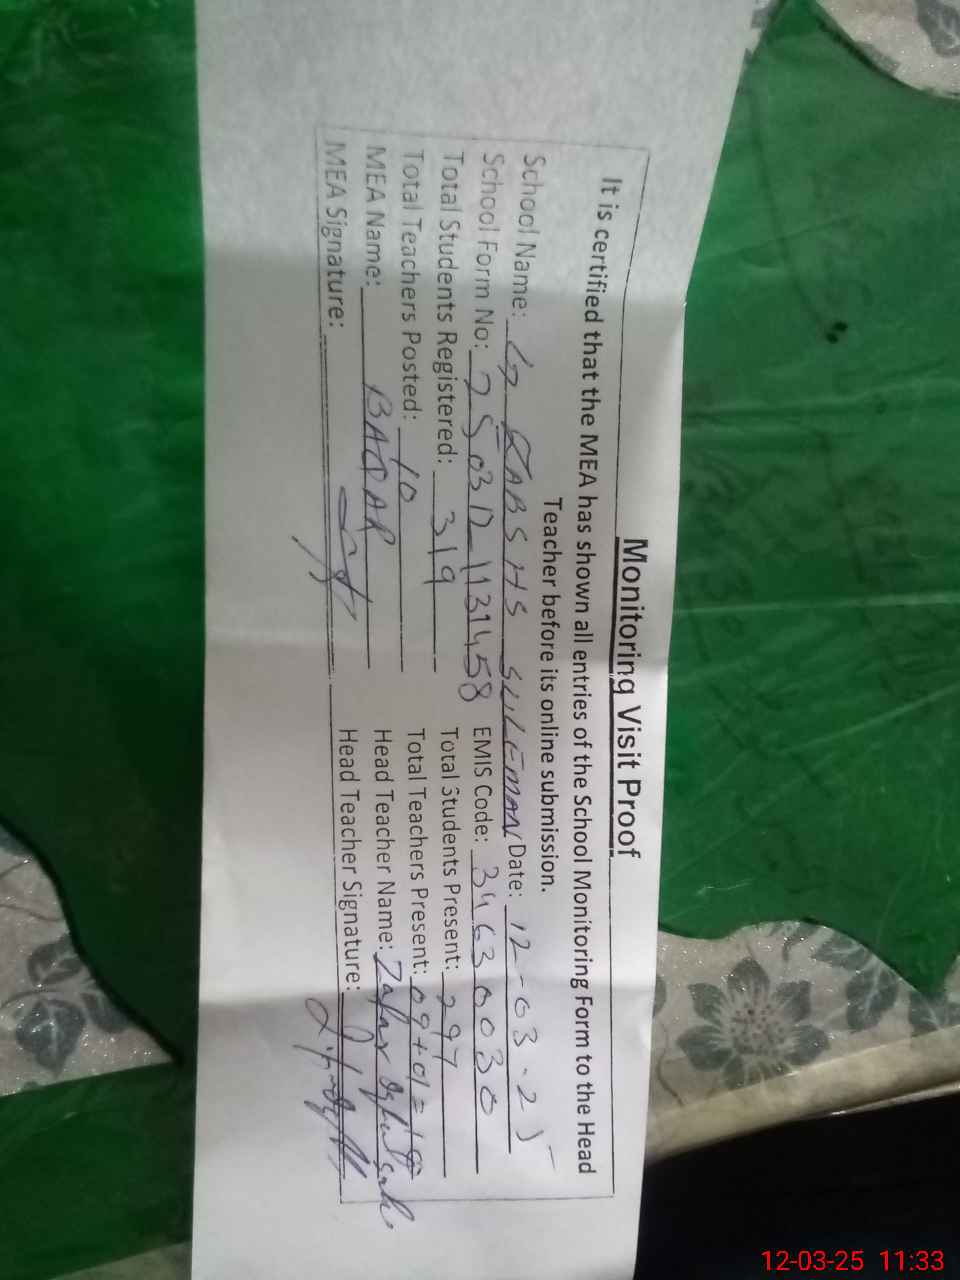 Monitoring Visit Proof
It is certified that the MEA has shown all entries of the School Monitoring Form to the Head
Teacher before its online submission.
School Name: G QABS HS SULEMAN Date: 12-03-25
School Form No: 2503121131458 EMIS Code: 34630030
Total Students Registered: 319 Total Students Present: 297
Total Teachers Posted: 10 Total Teachers Present: 09+01=10
MEA Name: BAQAR Head Teacher Name: Zafar
MEA Signature: Head Teacher Signature:
12-03-25 11:33